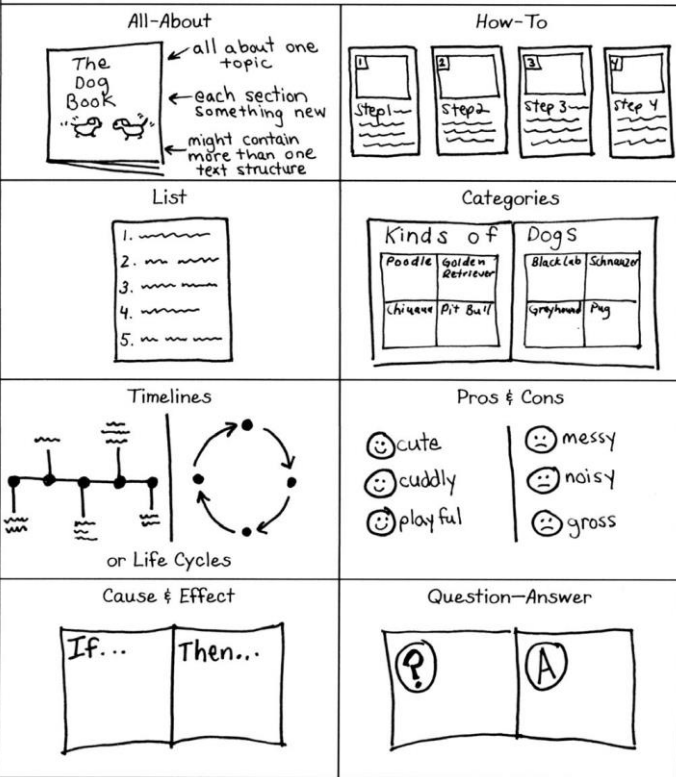 All-About
The
Dog
Book
all about one
topic
each section
something new
might contain
more than one
text structure
How-To
1
Step1
2
Step2
3
Step 3
4
Step 4
List
1.
2.
3.
4.
5.
Categories
Kinds of Dogs
Poodle
Golden
Retriever
Pit Bull
Black Lab
Schnauzer
Greyhound
Pug
Timelines
or Life Cycles
Pros & Cons
cute
cuddly
playful
messy
noisy
gross
Cause & Effect
If...
Then...
Question-Answer
?
A